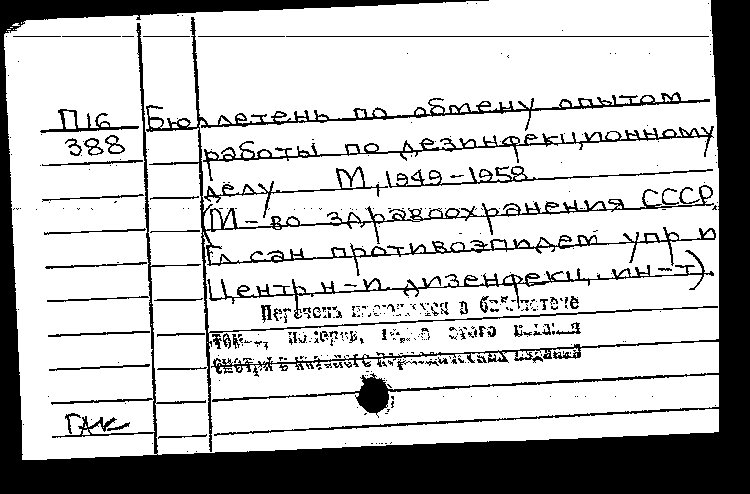 П16 Бюллетень по обмену опытом
388 работы по дезинфекционному
делу. М, 1949-1958.
(М-во здравоохранения СССР.
Гл. сан. противоэпидем упр и
Центр. н-и. дизенфекц. ин-т).
Перечень имеющихся в библиотеке
томов, номеров, годов этого издания
смотри в каталоге периодических изданий
ГАК